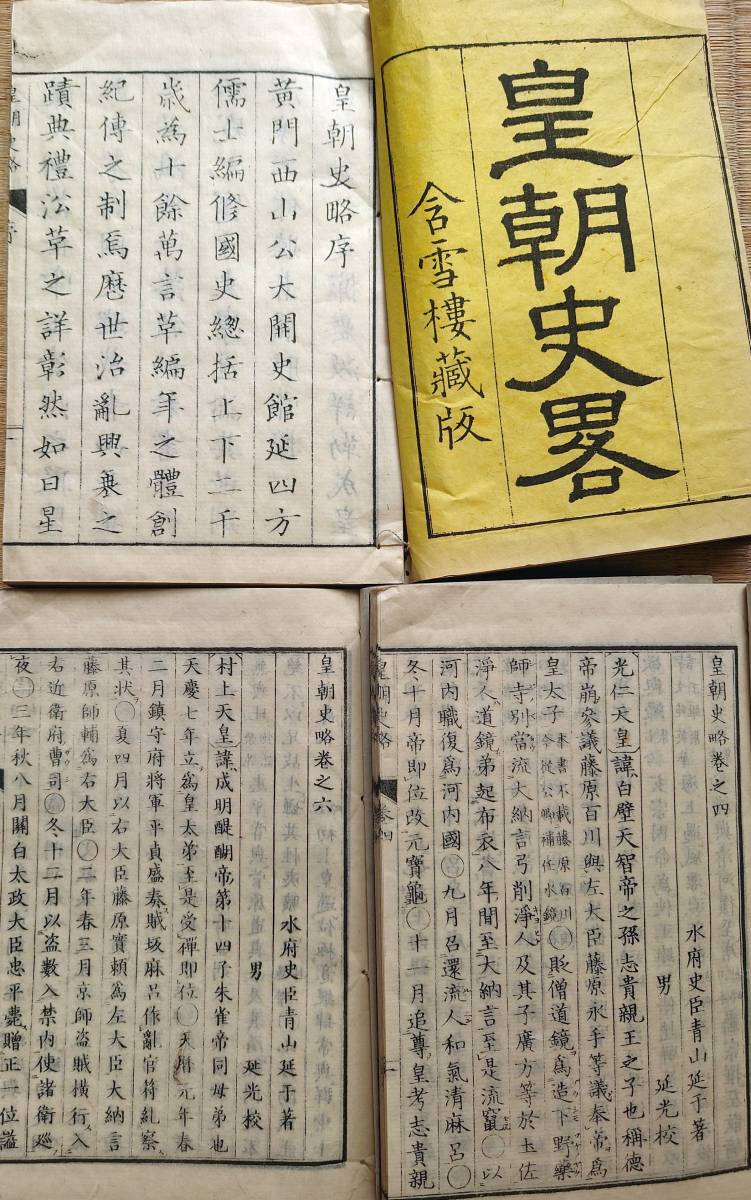 皇朝史畧
含雪樓藏版
皇朝史略序
黄門西山公大開史館延四方
儒士編修國史總括上下二千
歳為十餘萬言草編年之體創
紀傳之制焉歴世治亂興衰之
蹟典禮沿革之詳彰然如日星
皇朝史略
序
皇朝史略卷之四
水府史臣青山延于著
男
延光校
光仁天皇諱白壁天智帝之孫志貴親王之子也稱德
帝崩參議藤原百川與左大臣藤原永手等議奉帝為
皇太子本書不載藤原百川今從公卿補任水鏡貶僧道鏡為造下野藥
師寺別當流大納言弓削淨人及其子廣方等於土佐
淨人道鏡弟起布衣八年間至大納言至是流竄以
河内職復為河内國九月召還流人和氣清麻呂
冬十月帝即位改元寶龜十一月追尊皇考志貴親
皇朝史略
卷四
皇朝史略卷之六
水府史臣青山延于著
男
延光校
村上天皇諱成明醍醐帝第十四子朱雀帝同母弟也
天慶七年立為皇太弟至是受禪即位天曆元年春
二月鎮守府將軍平貞盛奏賊坂麻呂作亂官符糺察
其狀夏四月以右大臣藤原實賴為左大臣大納言
藤原師輔為右大臣二年春三月京師盜賊橫行入
右近衛府曹司冬十二月以盜數入禁内使諸衛巡
夜三年秋八月關白太政大臣忠平薨贈正一位謚